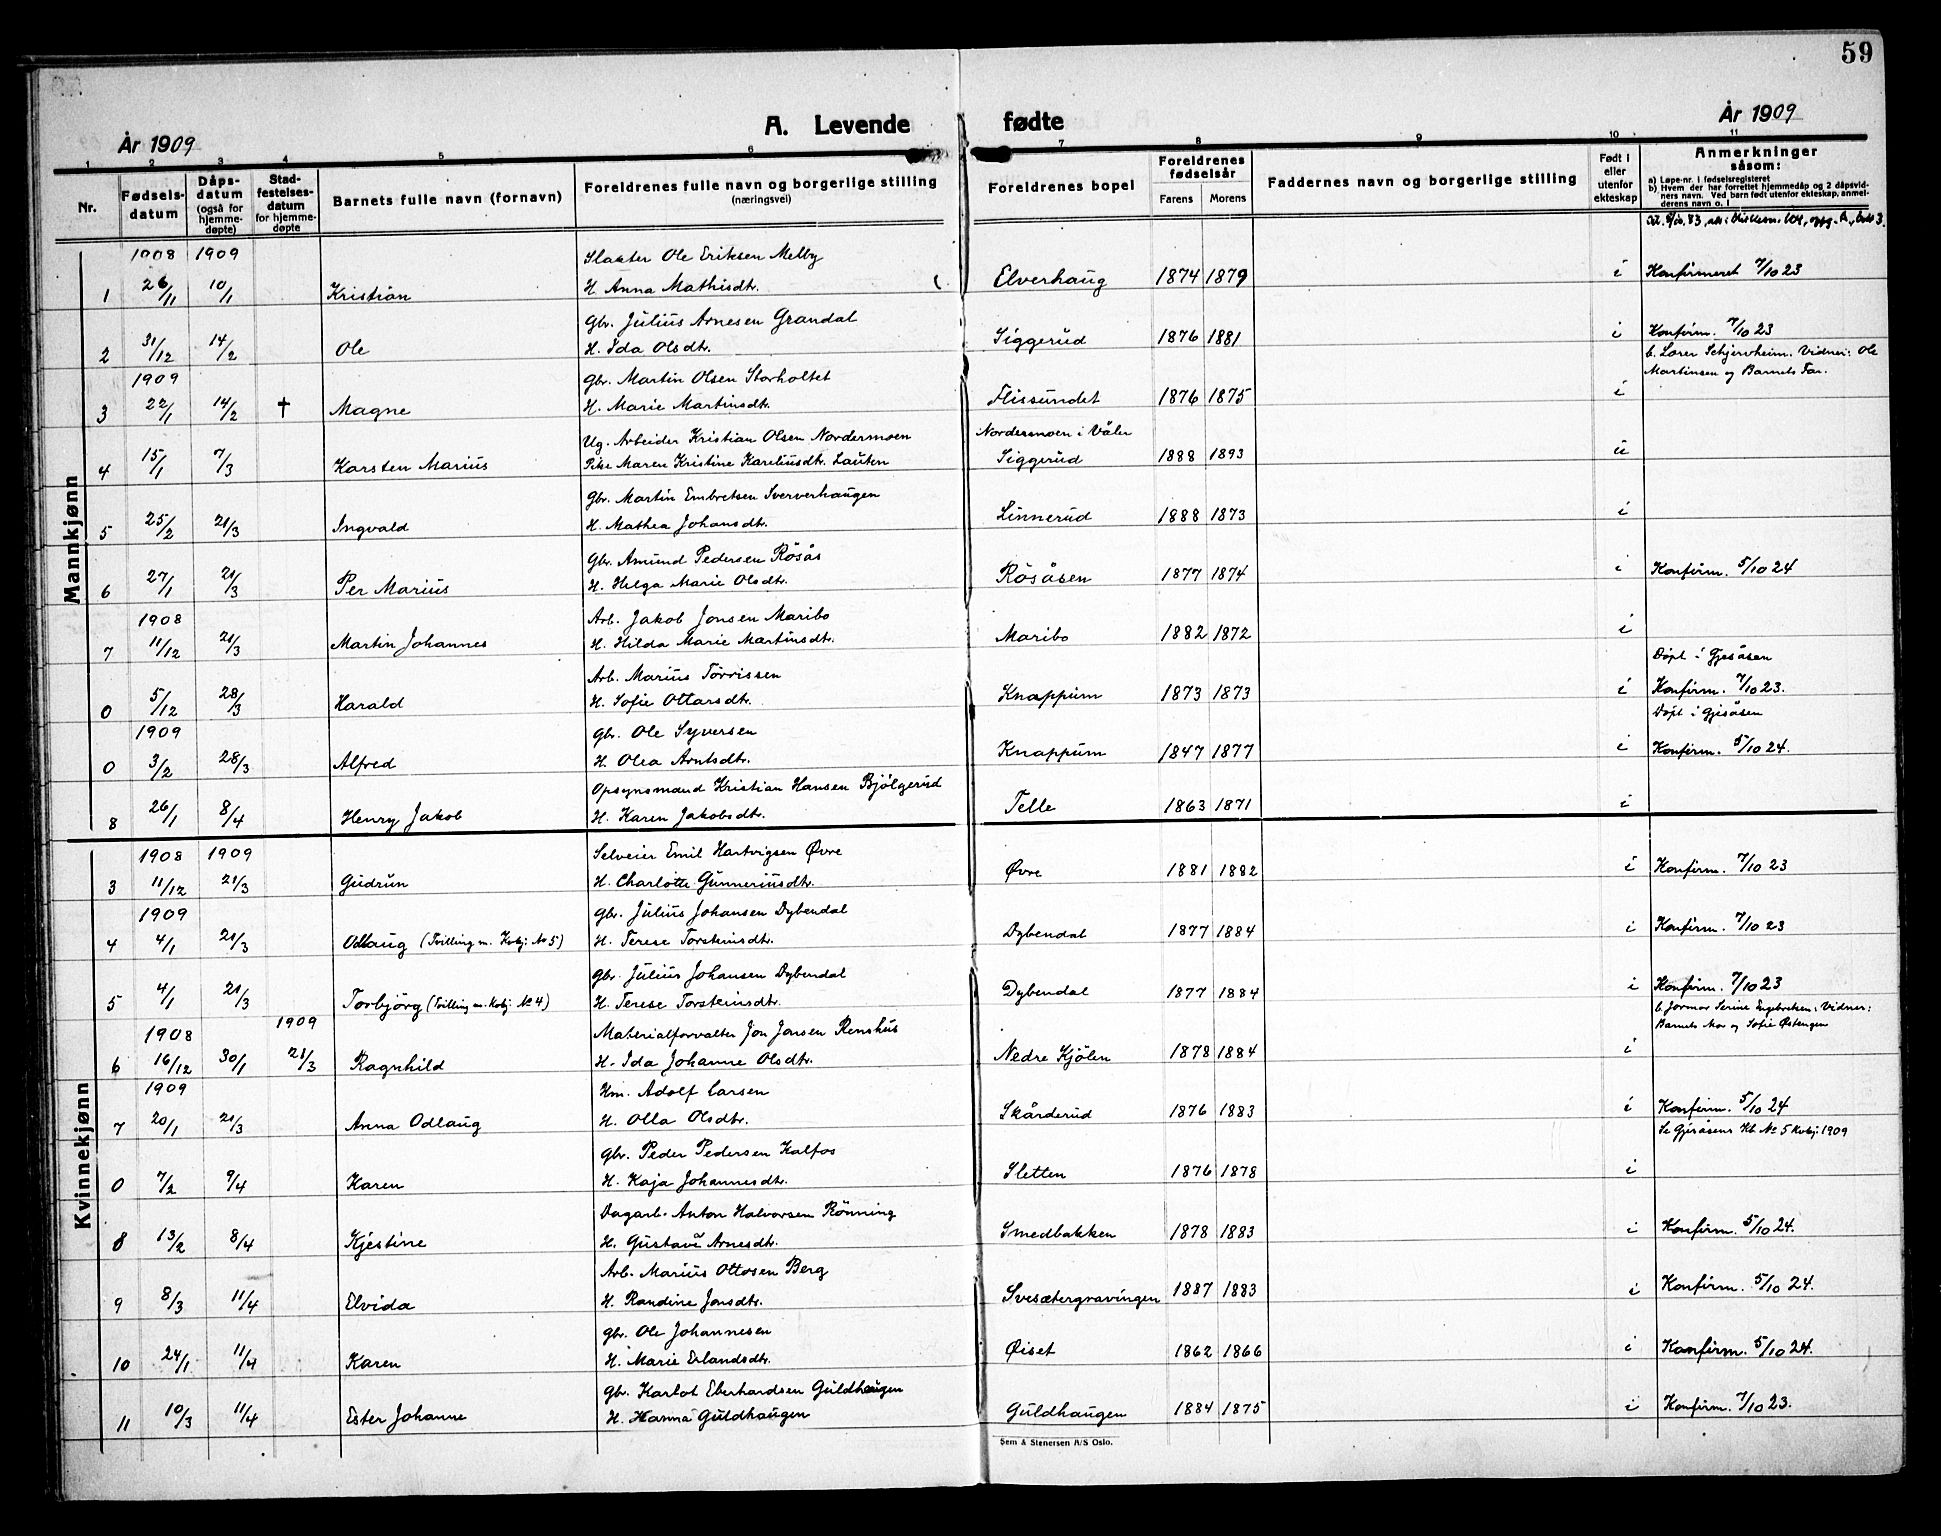 59
A. Levende fødte
År 1909
År 1909
1 2 3 4 5 6 7 8 9 10 11
Nr.
Fødsels-
datum
Dåps-
datum
(også for
hjemme-
døpte)
Stad-
festelses-
datum
for hjemme-
døpte
Barnets fulle navn (fornavn)
Foreldrenes fulle navn og borgerlige stilling
(næringsvei)
Foreldrenes bopel
Foreldrenes
fødselsår
Farens Morens
Faddernes navn og borgerlige stilling
Født i
eller
utenfor
ekteskap
Anmerkninger
såsom:
a) Løpe-nr. i fødselsregisteret
b) Hvem der har forrettet hjemmedåp og 2 dåpsvid-
ners navn. Ved barn født utenfor ekteskap, anmel-
derens navn o. l.
Mannkjønn
1908 1909 Slakter Ole Eriksen Melby
1 26/11 10/1 Kristian H. Anna Mathisdtr. Elverhaug 1874 1879 i Konfirmeret 7/10 23
Gbr. Julius Arnesen Grandal
2 31/12 14/2 Ole H. Ida Olsdtr. Siggerud 1876 1881 i Konfirm. 7/10 23
b. Lærer Schjervheim. Vidner: Ole
1909 Gbr. Martin Olsen Storholtet Martinsen og Barnets Far.
3 22/1 14/2 † Magne H. Marie Martinsdtr. Flissundet 1876 1875 i
Ug. Arbeider Kristian Olsen Nordermoen Nordermoen i Våler
4 15/1 7/3 Karsten Marius Pike Maren Kristine Kareliusdtr. Lauten Siggerud 1888 1893 u
Gbr. Martin Embretsen Sververhaugen
5 25/2 21/3 Ingvald H. Mathea Johansdtr. Linnerud 1888 1873 i
Gbr. Amund Pedersen Rösås
6 27/1 21/3 Per Marius H. Helga Marie Olsdtr. Rösåsen 1877 1874 i Konfirm. 5/10 24
1908 Arb. Jakob Jonsen Maribo
7 11/12 21/3 Martin Johannes H. Hilda Marie Martinsdtr. Maribo 1882 1872 i
Arb. Marius Torrissen Döpt i Gjesåsen
0 5/12 28/3 Harald H. Sofie Ottarsdtr. Knappum 1873 1873 i Konfirm. 7/10 23.
1909 Gbr. Ole Syversen Döpt i Gjesåsen
0 3/2 28/3 Alfred H. Olea Arntsdtr. Knappum 1847 1877 i Konfirm. 5/10 24.
Opsynsmand Kristian Hansen Bjölgerud
8 26/1 8/4 Henry Jakob H. Karen Jakobsdtr. Telle 1863 1871 i
Kvinnekjønn
1908 1909 Selveier Emil Hartvigsen Øvre
3 11/12 21/3 Gudrun H. Charlotte Gunneriusdtr. Øvre 1881 1882 i Konfirm. 7/10 23
1909 Gbr. Julius Johansen Dybendal
4 4/1 21/3 Odlaug (Tvilling m. Kvkj. No 5) H. Terese Torsteinsdtr. Dybendal 1877 1884 i Konfirm. 7/10 23
Gbr. Julius Johansen Dybendal
5 4/1 21/3 Torbjörg (Tvilling m. Kvkj. No 4) H. Terese Torsteinsdtr. Dybendal 1877 1884 i Konfirm. 7/10 23
b. Jormor Serine Engebretsen. Vidner:
1908 1909 Materialforvalter Jon Jonsen Renshus Barnets Mor og Sofie Østengen
6 16/12 30/1 21/3 Ragnhild H. Ida Johanne Olsdtr. Nedre Kjölen 1878 1884 i
1909 Km. Adolf Larsen
7 20/1 21/3 Anna Odlaug H. Olla Olsdtr. Skårderud 1876 1883 i Konfirm. 5/10 24
Se Gjesåsens Kb. No 5 Kvkj. 1909
Gbr. Peder Pedersen Kalfos
0 7/2 9/4 Karen H. Kaja Johannesdtr. Sletten 1876 1878 i
Dagarb. Anton Halvorsen Rönning
8 13/2 8/4 Kjestine H. Gustava Arnesdtr. Smedbakken 1878 1883 i Konfirm. 5/10 24.
Arb. Marius Ottosen Berg
9 8/3 11/4 Elvida H. Randine Jonsdtr. Svesætergravingen 1887 1883 i Konfirm. 5/10 24.
Gbr. Ole Johannesen
10 24/1 11/4 Karen H. Marie Erlandsdtr. Øiset 1862 1866 i Konfirm. 5/10 24.
Gbr. Karlot Eberhardsen Guldhaugen
11 10/3 11/4 Ester Johanne H. Hanna Guldhaugen Guldhaugen 1884 1875 i Konfirm. 7/10 23.
Sem & Stenersen A/S Oslo.